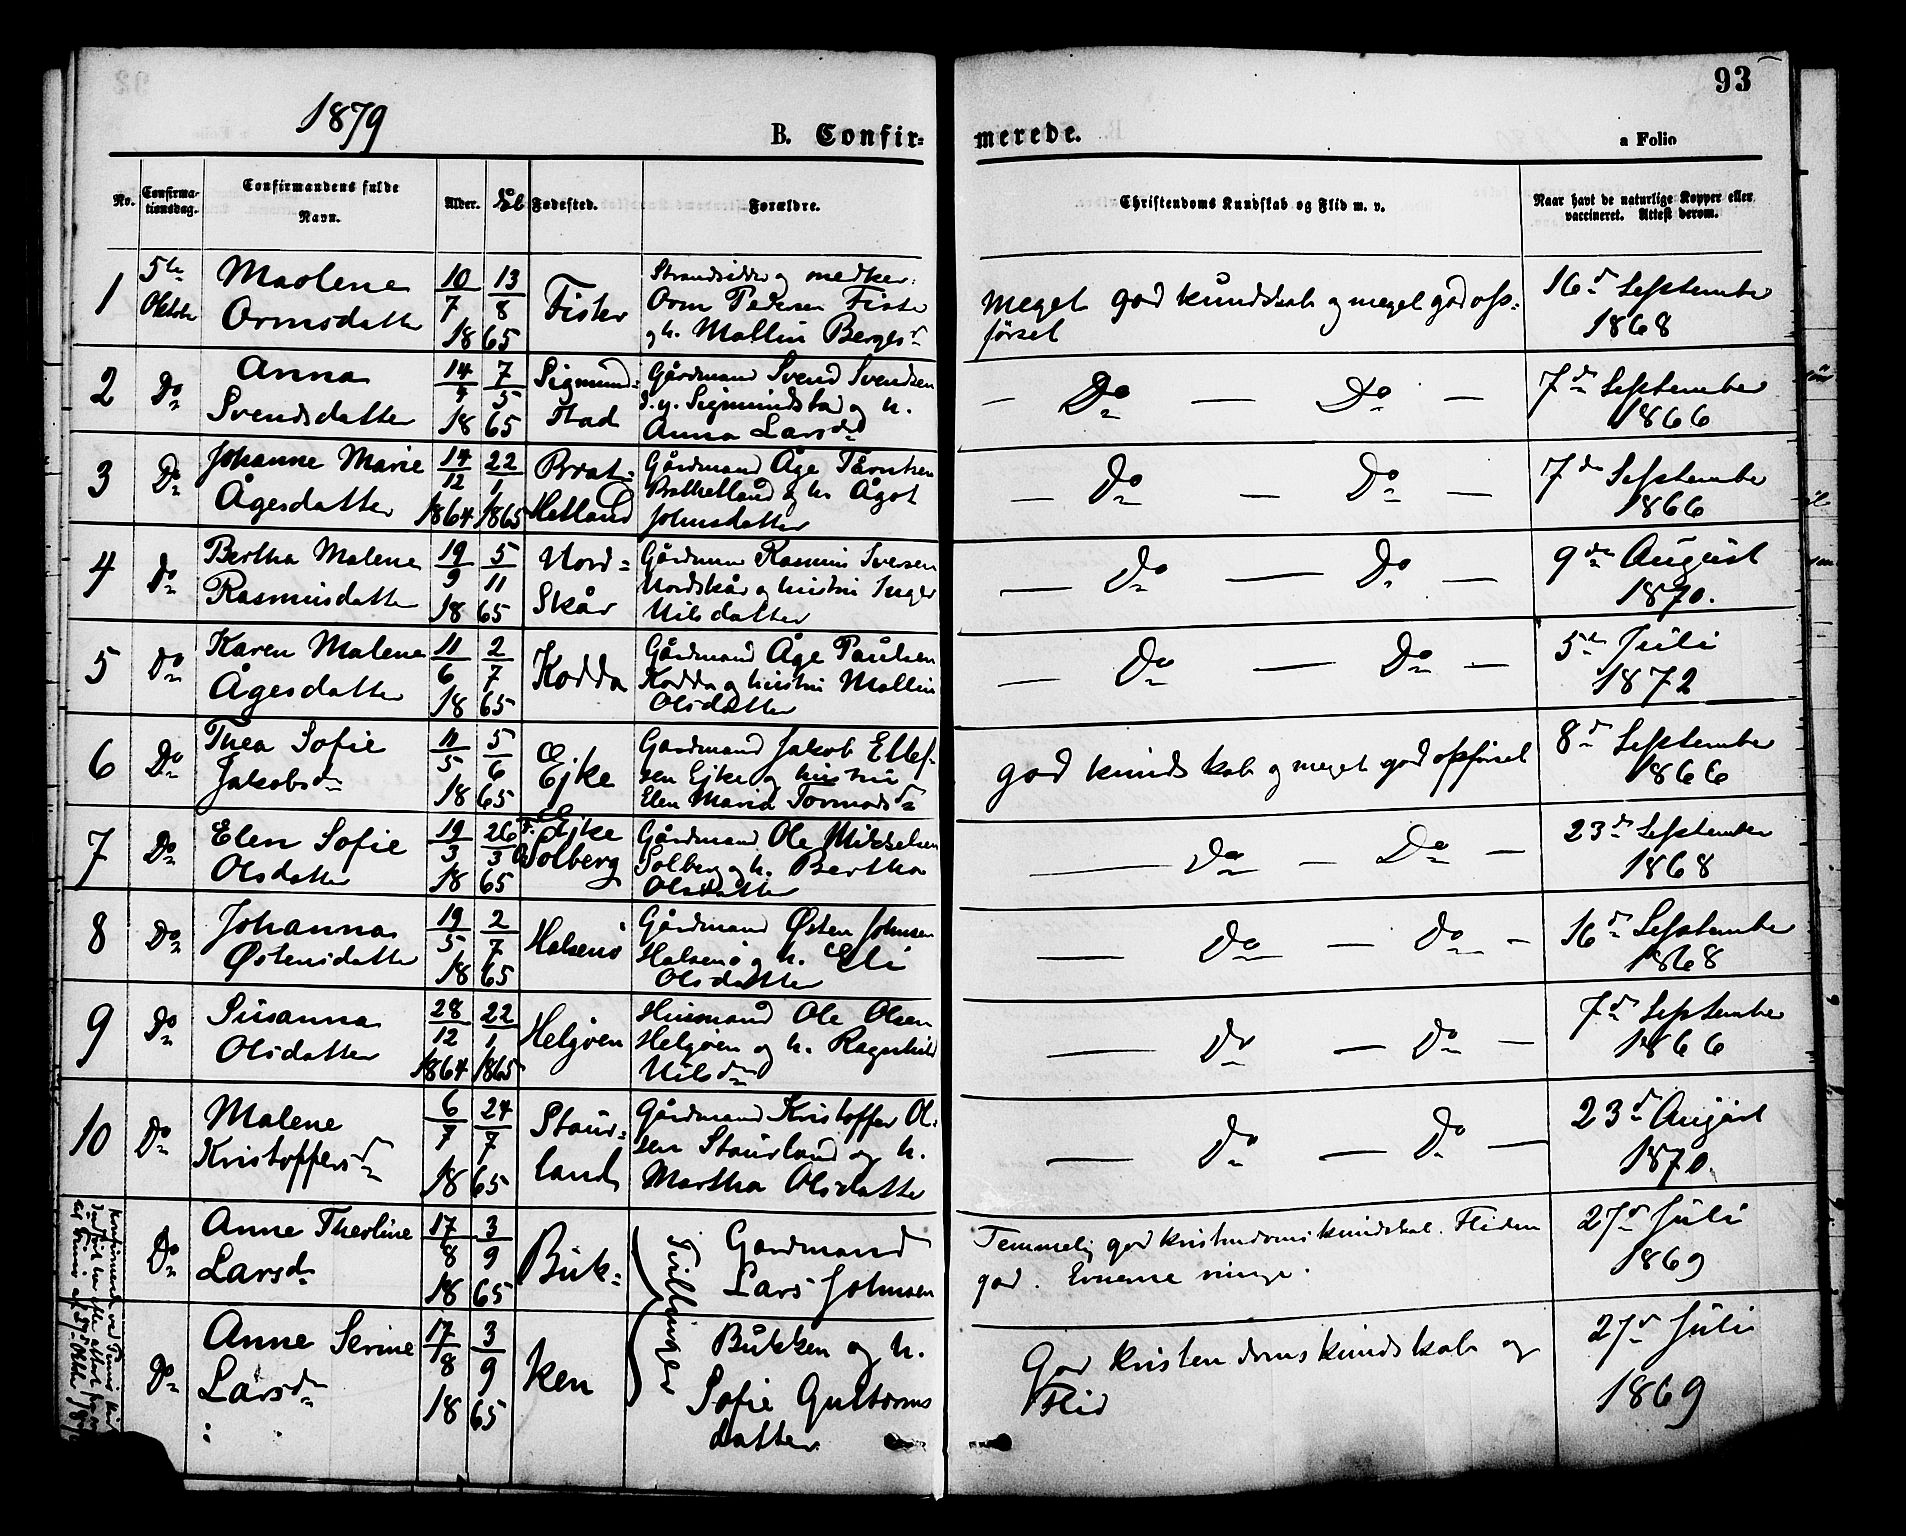 93
1879
B. Confir-
merede.
a Folio
No.
Confirma-
tionsdag.
Confirmandens fulde
Navn.
Alder.
Fødested.
Forældre.
Christendoms Kundskab og Flid m. v.
Naar havt de naturlige Kopper eller
vaccineret. Attest derom.
1
5te
Oktobr
Maolene
Ormsdatter
10/7 1865
13/8
Fister
Strandsidder og medkier:
Orm Pedersen Fister
og h. Mallin Bergesd
Meget god kundskab og meget god op-
førsel
16d September
1868
2
Do
Anna
Svendsdatter
14/4 1865
7/5
Sigmund-
stad
Gårdmand Svend Svendsen
d. y. Sigmundstad og h.
Anna Larsd
— Do — Do —
7de September
1866
3
Do
Johanne Marie
Ågesdatter
14/12 1864
22/1 1865
Brat-
Hetland
Gårdmand Åge Tårntsen
Brathetland og h. Ågot
Johnsdatter
— Do — Do —
7de September
1866
4
Do
Bertha Malene
Rasmusdatter
19/9 1865
5/11
Nord-
Skår
Gårdman Rasmus Iversen
Nordskår og hustru Inger
Nilsdatter
— Do — Do —
9de August
1870.
5
Do
Karen Malene
Ågesdatter
11/6 1865
2/7
Kodda
Gårdmand Åge Paulsen
Kodda og hustru Mallin
Olsdatter
— Do — Do —
5te Juli
1872
6
Do
Thea Sofie
Jakobsd
11/5 1865
5/6
Ejke
Gardmand Jakob Ellef-
sen Ejke og hustru
Elen Maria Tormodsd
god kundskab og meget god opførsel
8d September
1866
7
Do
Elen Sofie
Olsdatter
19/3 1865
26/3
F. Ejke
Solberg
Gårdmand Ole Mikkelsen
Solberg og h. Bertha
Olsdatter
— Do — Do —
23d September
1868
8
Do
Johanna
Østensdatter
19/5 1865
2/7
Halsenø
Gårdmand Østen Johnsen
Halsenø og h. Eli
Olsdatter
— Do — Do —
16d September
1868
9
Do
Susanna
Olsdatter
28/12 1864
22/1 1865
Helgøen
Husmand Ole Olsen
Helgøen og h. Ragnhild
Nilsd
— Do — Do —
7d September
1866
10
Do
Malene
Kristoffersd
6/7 1865
24/7
Staur-
land
Gårdmand Kristoffer Ol-
sen Staurland og h.
Martha Olsdatter
— Do — Do —
23d August
1870.
Do
Anne Theoline
Larsd
17/8 1865
3/9
Buk-
Tvillinger
Gardmand
Lars Johnsen
Temmelig god kristendomskundskab. Fliden
god. Evnerne ringe.
27d Juli
1869
Do
Anne Serine
Larsd
17/8 1865
3/9
ken
Bukken og h.
Sofie Guttorms
datter
God kristendomskundskab og
Flid
27d Juli
1869